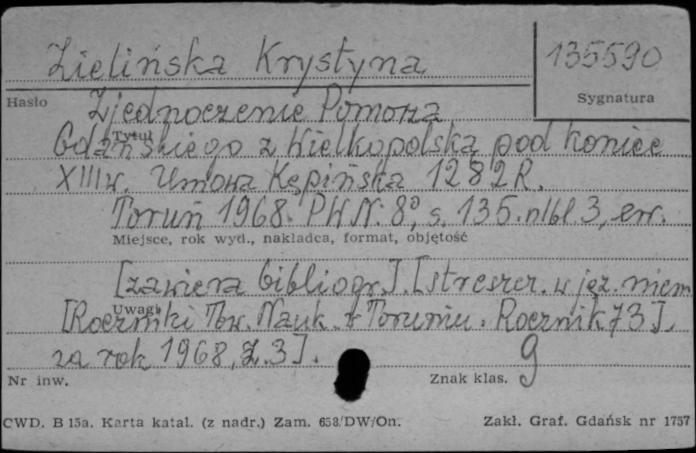 Zielińska Krystyna
135590
Hasło
Sygnatura
Zjednoczenie Pomorza
Tytuł
Gdańskiego z Wielkopolską pod koniec
XIII w. Umowa Kępińska 1282 R.
Toruń 1968. PWN. 8°, s. 135. nlbl. 3, err.
Miejsce, rok wyd., nakładca, format, objętość
[zawiera bibliogr.]. [streszcz. w jęz. niem
Uwagi
[Roczniki Tow. Nauk. w Toruniu. Rocznik 73].
za rok 1968, Z. 3].
Nr inw.
Znak klas. 9
CWD. B 15a. Karta katal. (z nadr.) Zam. 653/DW/On.
Zakł. Graf. Gdańsk nr 1757